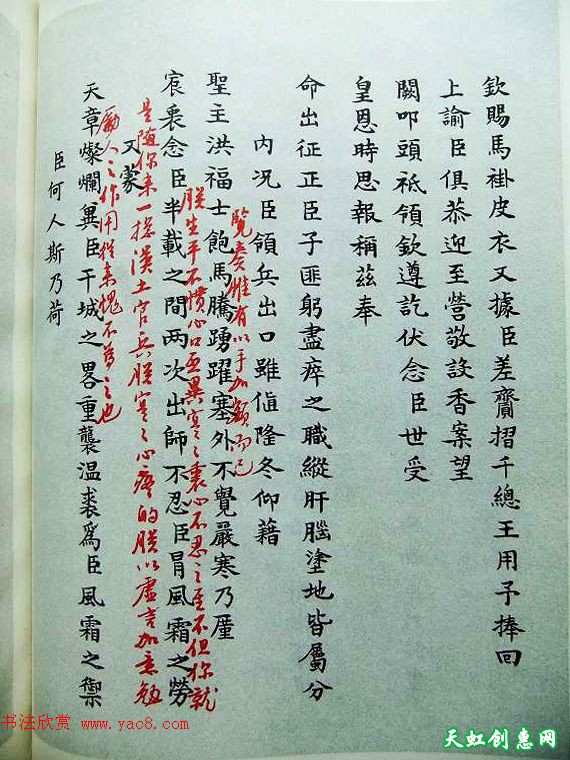 欽賜馬褂皮衣又據臣差齎摺千總王用予捧回
上諭臣俱恭迎至營敬設香案望
闕叩頭祗領欽遵訖伏念臣世受
皇恩時思報稱茲奉
命出征正臣子匪躬盡瘁之職縱肝腦塗地皆屬分
內况臣領兵出口雖值隆冬仰藉
覽奏惟有以手加額而已
聖主洪福士飽馬騰踴躍塞外不覺嚴寒乃廑
朕生平不慣心口異寔之衷心不忍之至不但你就
宸衷念臣半載之間两次出師不忍臣冒風霜之勞
是隨你来一摠漢土官兵朕寔之心疼的朕以虛言加意勉
又蒙
勵人之作用從来愧不為之也
天章燦爛冀臣干城之畧重襲温裘爲臣風霜之禦
臣何人斯乃荷
书法欣赏 www.yac8.com
天虹创惠网